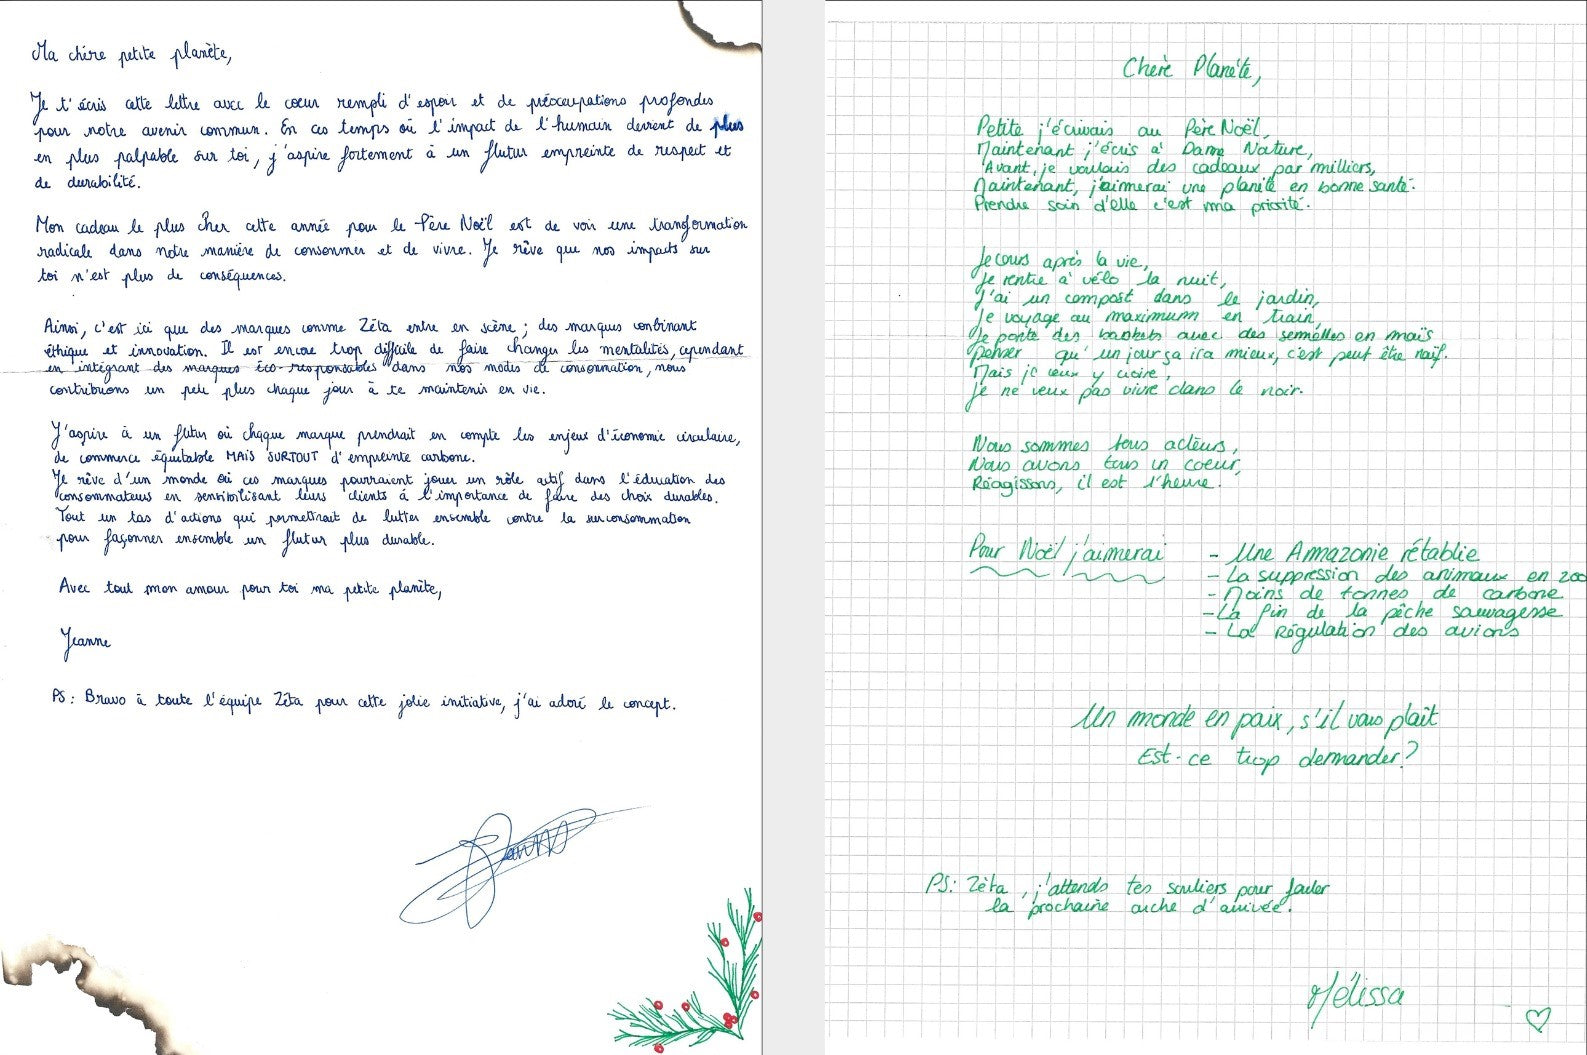 Ma chère petite planète,
Je t'écris cette lettre avec le coeur rempli d'espoir et de préoccupations profondes
pour notre avenir commun. En ces temps où l'impact de l'humain devient de plus
en plus palpable sur toi, j'aspire fortement à un futur empreinte de respect et
de durabilité.
Mon cadeau le plus cher cette année pour le Père Noël est de voir une transformation
radicale dans notre manière de consommer et de vivre. Je rêve que nos impacts sur
toi n'est plus de conséquences.
Ainsi, c'est ici que des marques comme Zèta entre en scène ; des marques combinant
éthique et innovation. Il est encore trop difficile de faire changer les mentalités, cependant
en intégrant des marques éco-responsables dans nos modes de consommation, nous
contribuons un petit plus chaque jour à te maintenir en vie.
J'aspire à un futur où chaque marque prendrait en compte les enjeux d'économie circulaire,
de commerce équitable MAIS SURTOUT d'empreinte carbone.
Je rêve d'un monde où ces marques pourraient jouer un rôle actif dans l'éducation des
consommateurs en sensibilisant leurs clients à l'importance de faire des choix durables.
Tout un tas d'actions qui permettrait de lutter ensemble contre la surconsommation
pour façonner ensemble un futur plus durable.
Avec tout mon amour pour toi ma petite planète,
Jeanne
PS : Bravo à toute l'équipe Zèta pour cette jolie initiative, j'ai adoré le concept.
Chère Planète,
Petite j'écrivais au Père Noël,
Maintenant j'écris à Dame Nature,
Avant, je voulais des cadeaux par milliers,
Maintenant, j'aimerai une planète en bonne santé.
Prendre soin d'elle c'est ma priorité.
Je cours après la vie,
Je rentre à vélo la nuit,
J'ai un compost dans le jardin,
Je voyage au maximum en train,
Je porte des baskets avec des semelles en maïs
Penser qu'un jour ça ira mieux, c'est peut être naïf.
Mais je veux y croire,
Je ne veux pas vivre dans le noir.
Nous sommes tous acteurs,
Nous avons tous un coeur,
Réagissons, il est l'heure.
Pour Noël j'aimerai - Une Amazonie rétablie
- La suppression des animaux en zoo
- Moins de tonnes de carbone
- La fin de la pêche sauvagesse
- La régulation des avions
Un monde en paix, s'il vous plaît
Est-ce trop demander ?
PS : Zèta, j'attends tes souliers pour fouler
la prochaine arche d'arrivée.
Mélissa